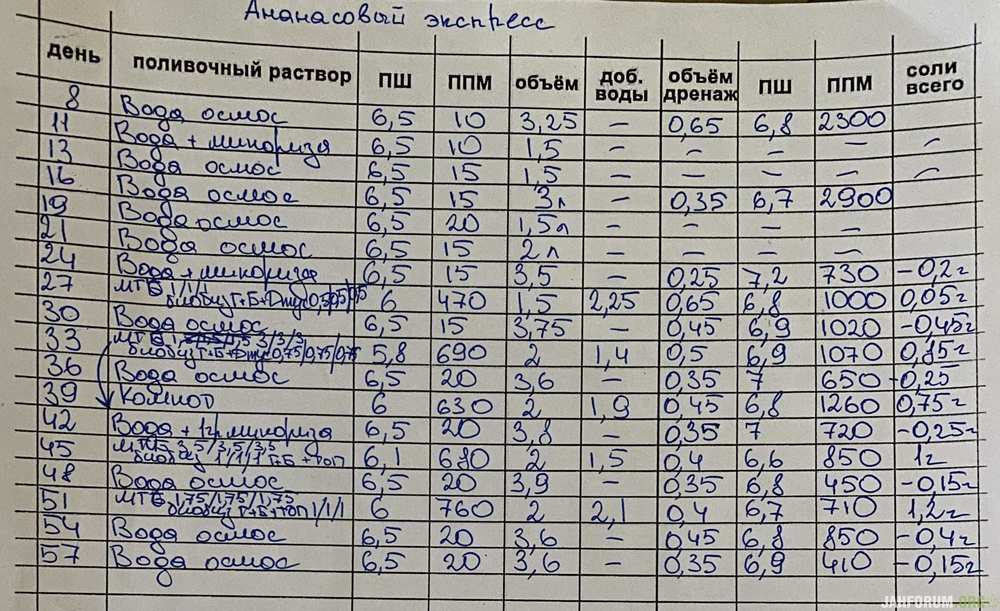 Ананасовый экспресс
день поливочный раствор ПШ ППМ объём доб. воды объём дренаж ПШ ППМ соли всего
8 Вода осмос 6,5 10 3,25 – 0,65 6,8 2300
11 Вода + микориза 6,5 10 1,5 – – – – –
13 Вода осмос 6,5 15 1,5 – – – – –
16 Вода осмос 6,5 15 3л – 0,35 6,7 2900
19 Вода осмос 6,5 20 1,5л – – – –
21 Вода осмос 6,5 15 2л – – – –
24 Вода + микориза 6,5 15 3,5 – 0,25 7,2 730 –0,2г
27 МТБ 1/1/1 биобизГ+Б+Dmy 0,5/0,5/0,5 6 470 1,5 2,25 0,65 6,8 1000 0,05г
30 Вода осмос 6,5 15 3,75 – 0,45 6,9 1020 –0,45г
33 МТБ 3/3/3 биобизГ+Б+Dmy 0,75/0,75/0,75 5,8 690 2 1,4 0,5 6,9 1070 0,85г
36 Вода осмос 6,5 20 3,6 – 0,35 7 650 –0,25
39 Компот 6 630 2 1,9 0,45 6,8 1260 0,75г
42 Вода + 1гр. микориза 6,5 20 3,8 – 0,35 7 720 –0,25г
45 МТБ 3,5/3,5/3,5 биобиз 1/1/1 Г+Б+топ 6,1 680 2 1,5 0,4 6,6 850 1г
48 Вода осмос 6,5 20 3,9 – 0,35 6,8 450 –0,15г
51 МТБ 1,75/1,75/1,75 биобиз Г+Б+топ 1/1/1 6 760 2 2,1 0,4 6,7 710 1,2г
54 Вода осмос 6,5 20 3,6 – 0,45 6,8 850 –0,4г
57 Вода осмос 6,5 20 3,6 – 0,35 6,9 410 –0,15г
JAHFORUM.ORG